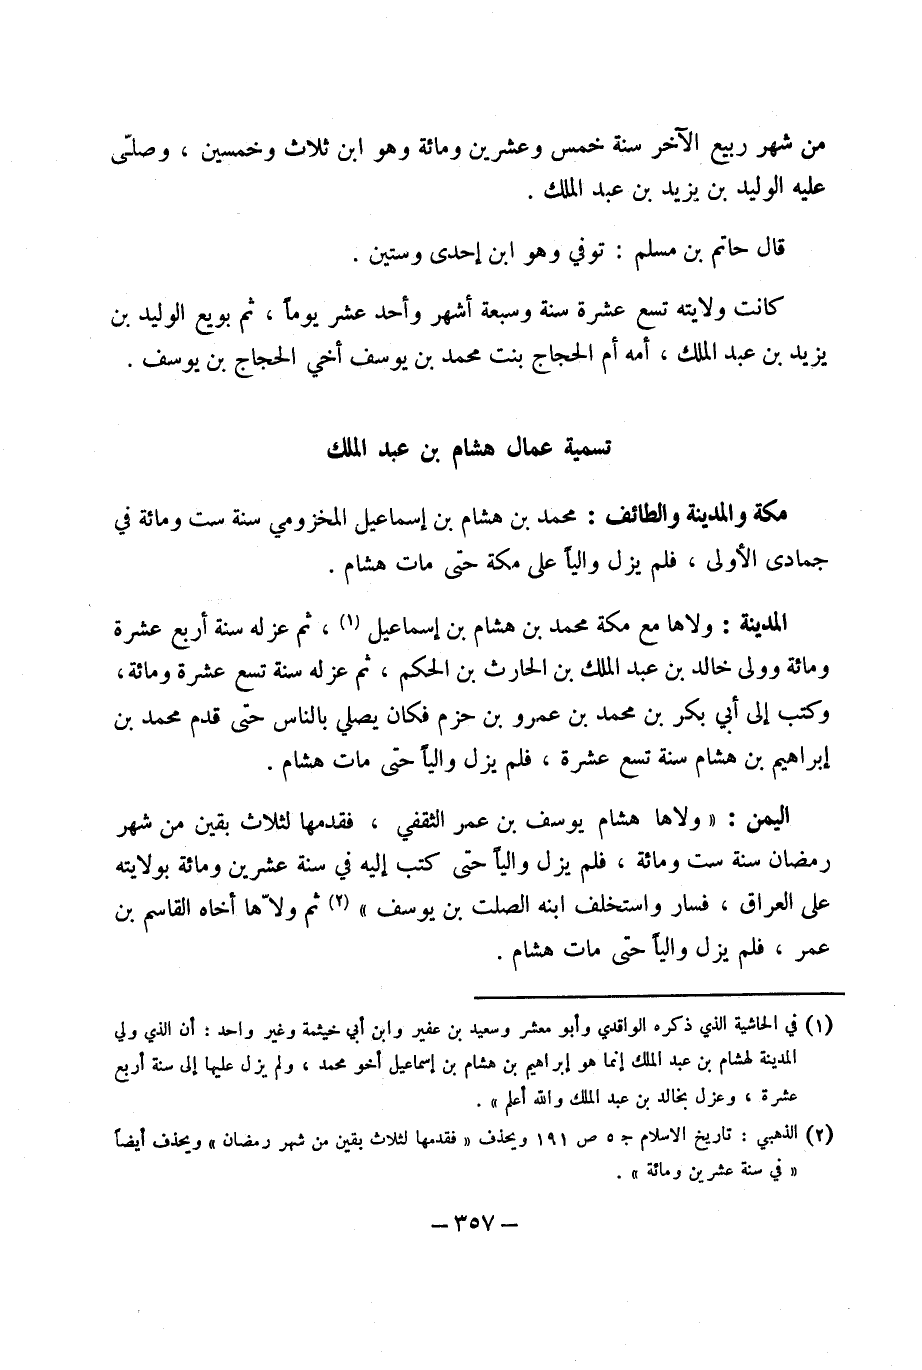 من شهر ربيع الآخر سنة خمس وعشرين ومائة وهو ابن ثلاث وخمسين ، وصلّى
عليه الوليد بن يزيد بن عبد الملك .
قال حاتم بن مسلم : توفي وهو ابن إحدى وستين .
كانت ولايته تسع عشرة سنة وسبعة أشهر وأحد عشر يوماً ، ثم بويع الوليد بن
يزيد بن عبد الملك ، أمه أم الحجاج بنت محمد بن يوسف أخي الحجاج بن يوسف .
تسمية عمال هشام بن عبد الملك
مكة والمدينة والطائف : محمد بن هشام بن إسماعيل المخزومي سنة ست ومائة في
جمادى الأولى ، فلم يزل والياً على مكة حتى مات هشام .
المدينة : ولاها مع مكة محمد بن هشام بن إسماعيل (١) ، ثم عزله سنة أربع عشرة
ومائة وولى خالد بن عبد الملك بن الحارث بن الحكم ، ثم عزله سنة تسع عشرة ومائة ،
وكتب إلى أبي بكر بن محمد بن عمرو بن حزم فكان يصلي بالناس حتى قدم محمد بن
إبراهيم بن هشام سنة تسع عشرة ، فلم يزل والياً حتى مات هشام .
اليمن : « ولاها هشام يوسف بن عمر الثقفي ، فقدمها لثلاث بقين من شهر
رمضان سنة ست ومائة ، فلم يزل والياً حتى كتب إليه في سنة عشرين ومائة بولايته
على العراق ، فسار واستخلف ابنه الصلت بن يوسف » (٢) ثم ولاّها أخاه القاسم بن
عمر ، فلم يزل والياً حتى مات هشام .
(١) في الحاشية الذي ذكره الواقدي وأبو معشر وسعيد بن عفير وابن أبي خيثمة وغير واحد : أن الذي ولي
المدينة لهشام بن عبد الملك إنما هو إبراهيم بن هشام بن إسماعيل أخو محمد ، ولم يزل عليها إلى سنة أربع
عشرة ، وعزل بخالد بن عبد الملك والله أعلم » .
(٢) الذهبي : تاريخ الاسلام ج ٥ ص ١٩١ ويحذف « فقدمها لثلاث بقين من شهر رمضان » ويحذف أيضاً
« في سنة عشرين ومائة » .
– ٣٥٧ –